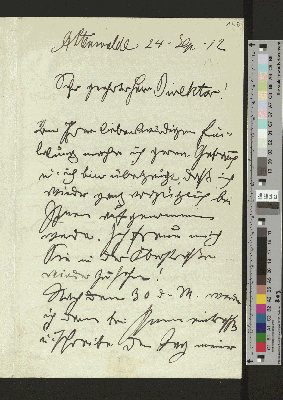 Altenwalde 24. Sep. 12
Sehr geehrter Herr Direktor!
Von Ihrer liebenswürdigen Ein-
ladung mache ich gerne Gebrauch
u. ich bin überzeugt, daß ich
wieder ganz vorzüglich bei
Ihnen aufgenommen
werde. Ich freue mich
Sie in der
wieder zu sehen!
Nach dem 30. d. M. werde
ich dann bei Ihnen eintreffen
u. schreibe den Tag meiner